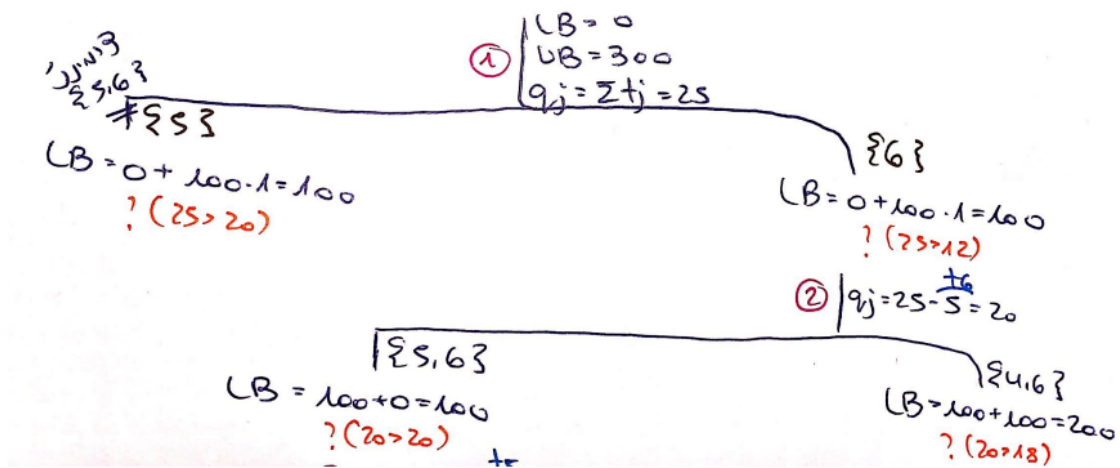 ① LB = 0
UB = 300
qj = Σtj = 25
{5,6}
{5}
LB = 0 + 100·1 = 100
? (25>20)
{6}
LB = 0 + 100·1 = 100
? (25>12)
② qj = 25 - 5 = 20
t6
{5,6}
LB = 100+0=100
? (20>20)
{4,6}
LB = 100+100=200
? (20>18)